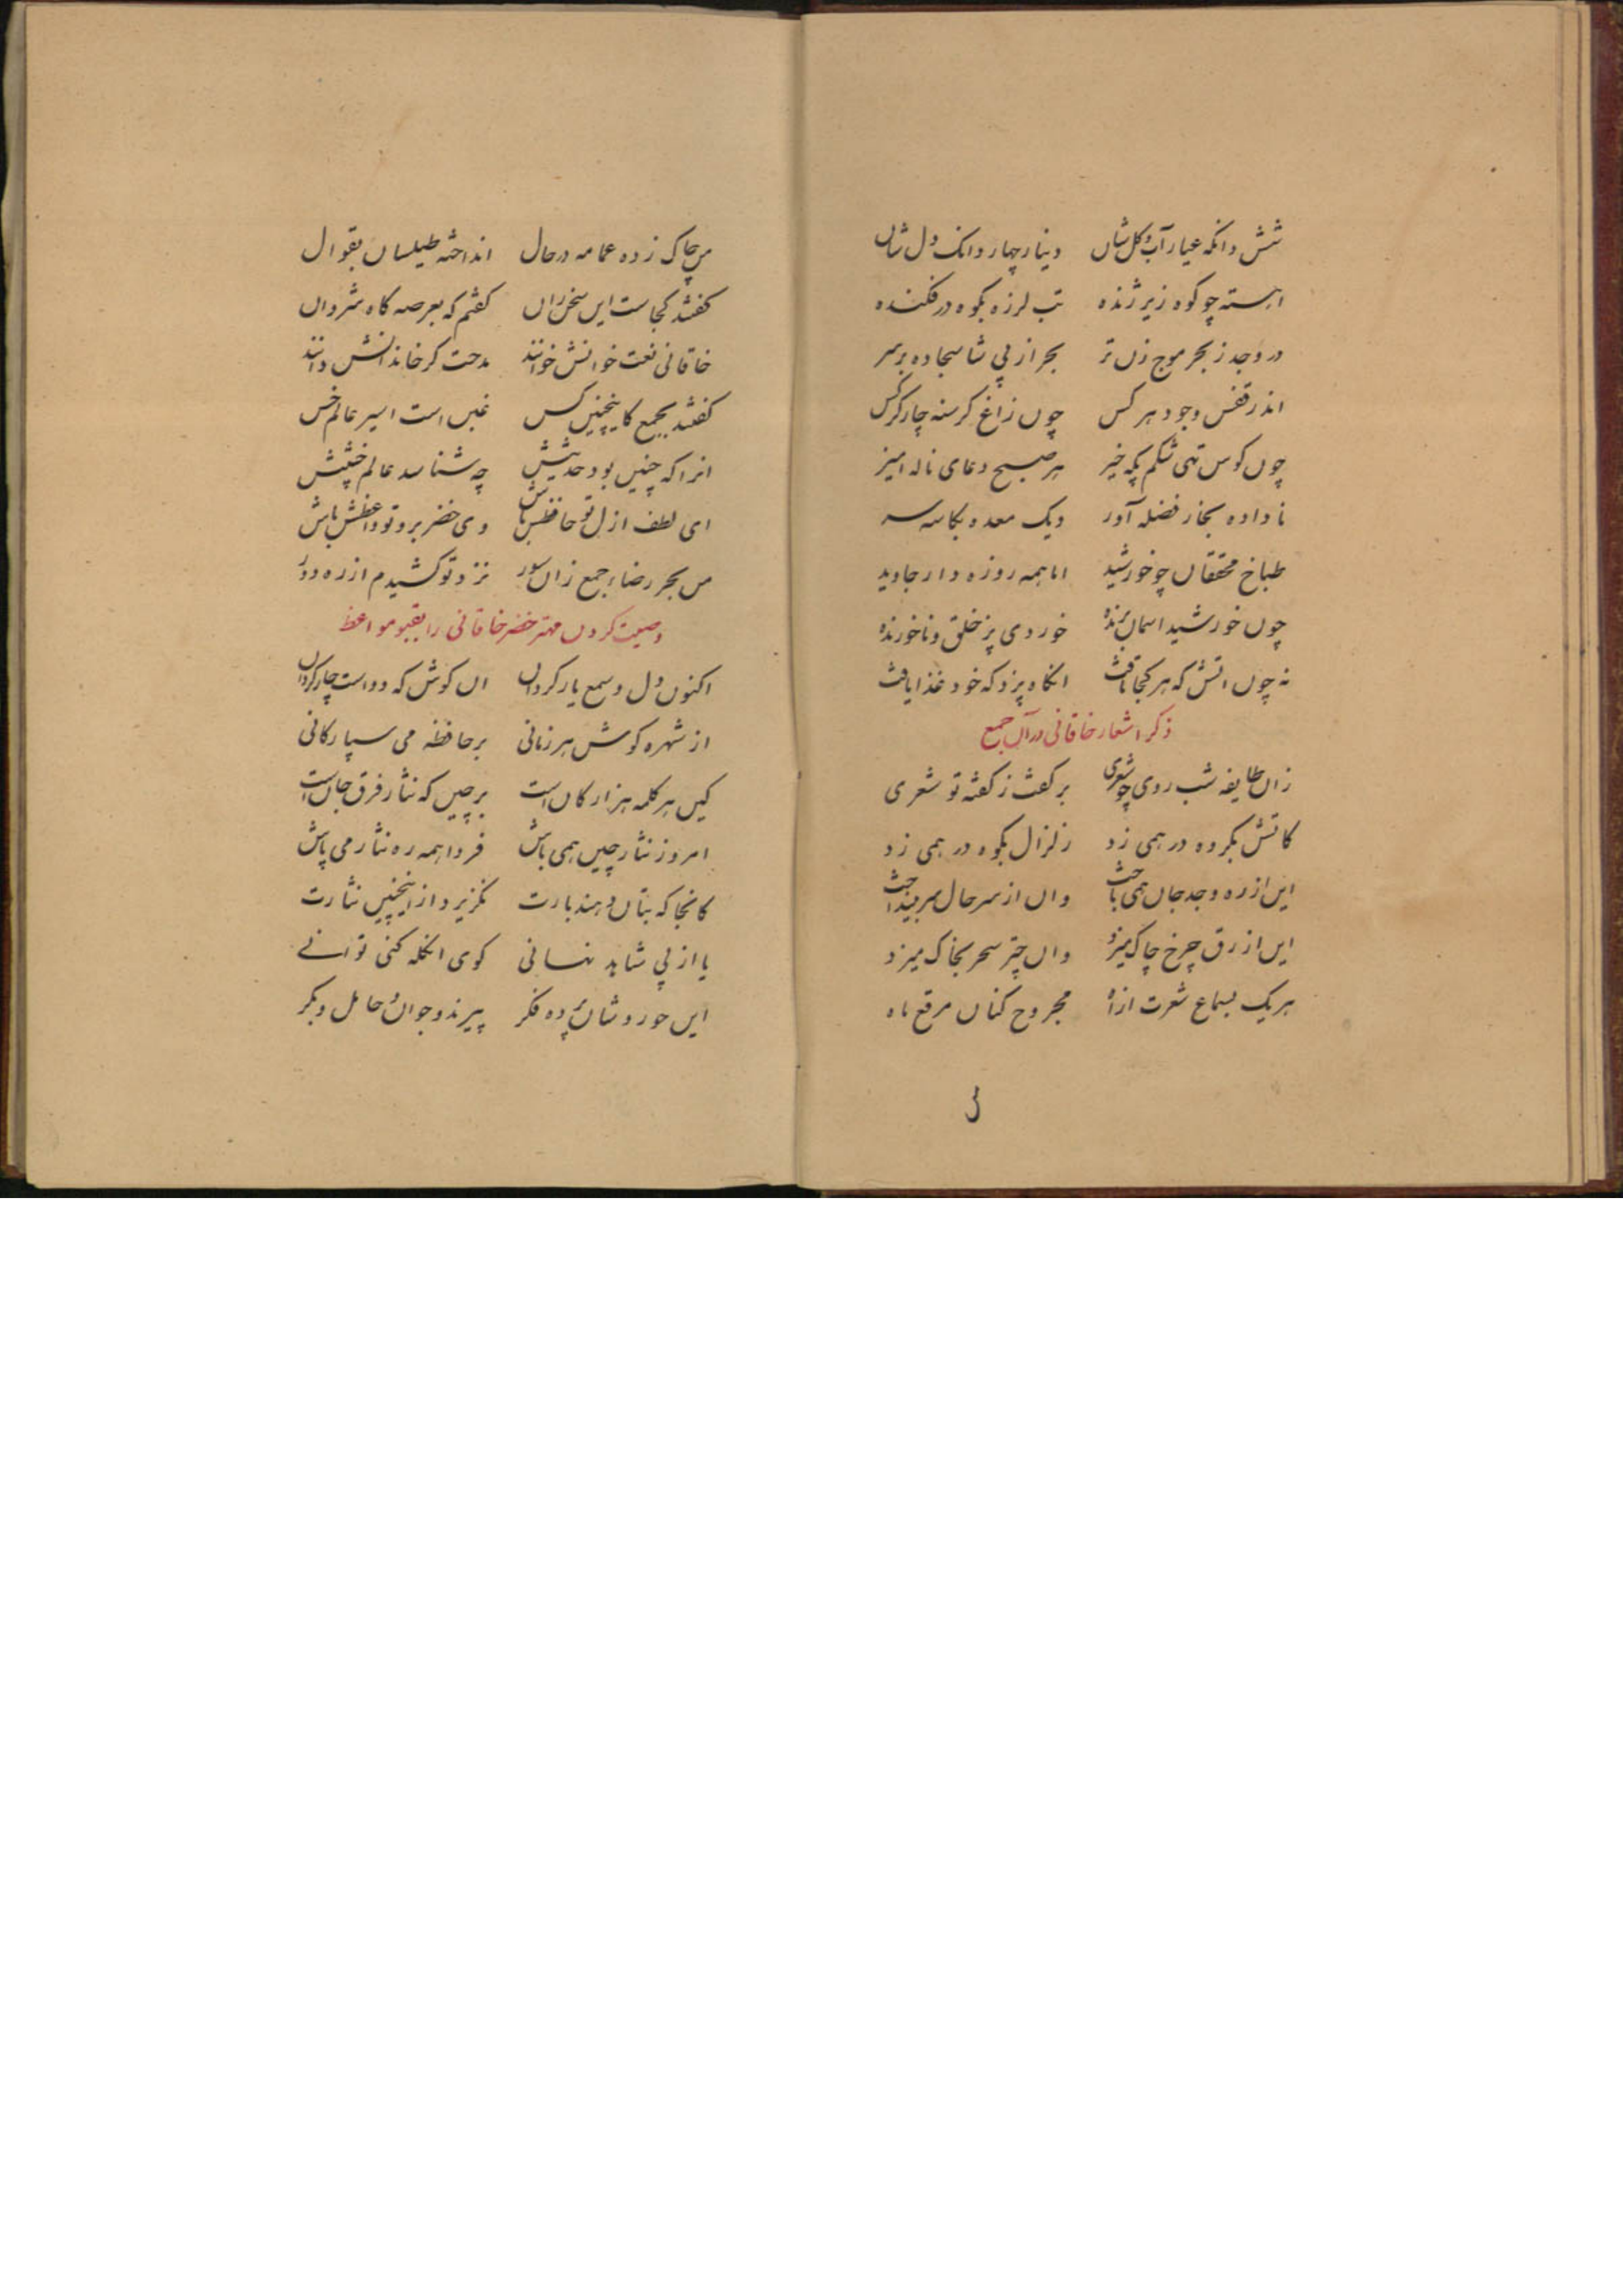 شش دانگه عیار آب و گل شان دینار چهار دانگ دل شان
اهسته چو کوه زیر ژنده تب لرزه بکوه در فکنده
در وجد ز بحر موج زن تر بحر از پی شا سجاده بر سر
اندر قفس وجود هر کس چون زاغ گرسنه چار کرکس
چون کوس تهی شکم پکه خیز هر صبح دعای ناله امیز
نا داده بخار فضله آور دیک معده بکاسه سر
طباخ محققان چو خورشید اما همه روزه دار جاوید
چون خورشید اسمان خوردی پز خلق و ناخورنده
نه چون اتش که هر کجا تافت انکاه پزد که خود غذا یافت
ذکر اشعار خاقانی در آن جمع
زان طایفه شب روی چو شعری بر گفت ز گفته تو شعری
کاتش بگروه در همی زد زلزال بکوه در همی زد
این از ره وجد جان همی باخت وان از سر حال سر بینداخت
این ازرق چرخ چاک میزد وان چتر سحر بخاک میزد
هر یک بسماع شعرت از اه مجروح کنان مرقع ماه
من چاک زده عمامه در حال انداخته طیلسان بقوال
گفتند کجاست این سخن ران گفتم که بعرصه گاه شروان
خاقانی نعت خوانش خوانند مدحت گر خاندانش دانند
گفتند بجمع کاینچنین کس غبن است اسیر عالم خس
انرا که چنین بود حدیثش چه شناسد عالم خبیثش
ای لطف ازل تو حافظش باش وی خضر برو تو واعظش باش
من بحر رضاء جمع زان سور نزد تو کشیدم از ره دور
وصیت کردن مهتر خضر خاقانی را بقبو مواعظ
اکنون دل و سمع یار گردان ان گوش که دو است چار گردان
از شهره گوش هر زمانی بر حافظه می سپار کانی
کین هر کلمه هزار کان است بر چین که نثار فرق جان است
امروز نثار چین همی باش فردا همه ره نثار می پاش
کانجا که بتان دهند بارت نگزیرد از اینچنین نثارت
یا از پی شاهد نهانی گوی انگله کنی توانے
این حور وشان پرده فکر پیرند و جوان و حامل و بکر